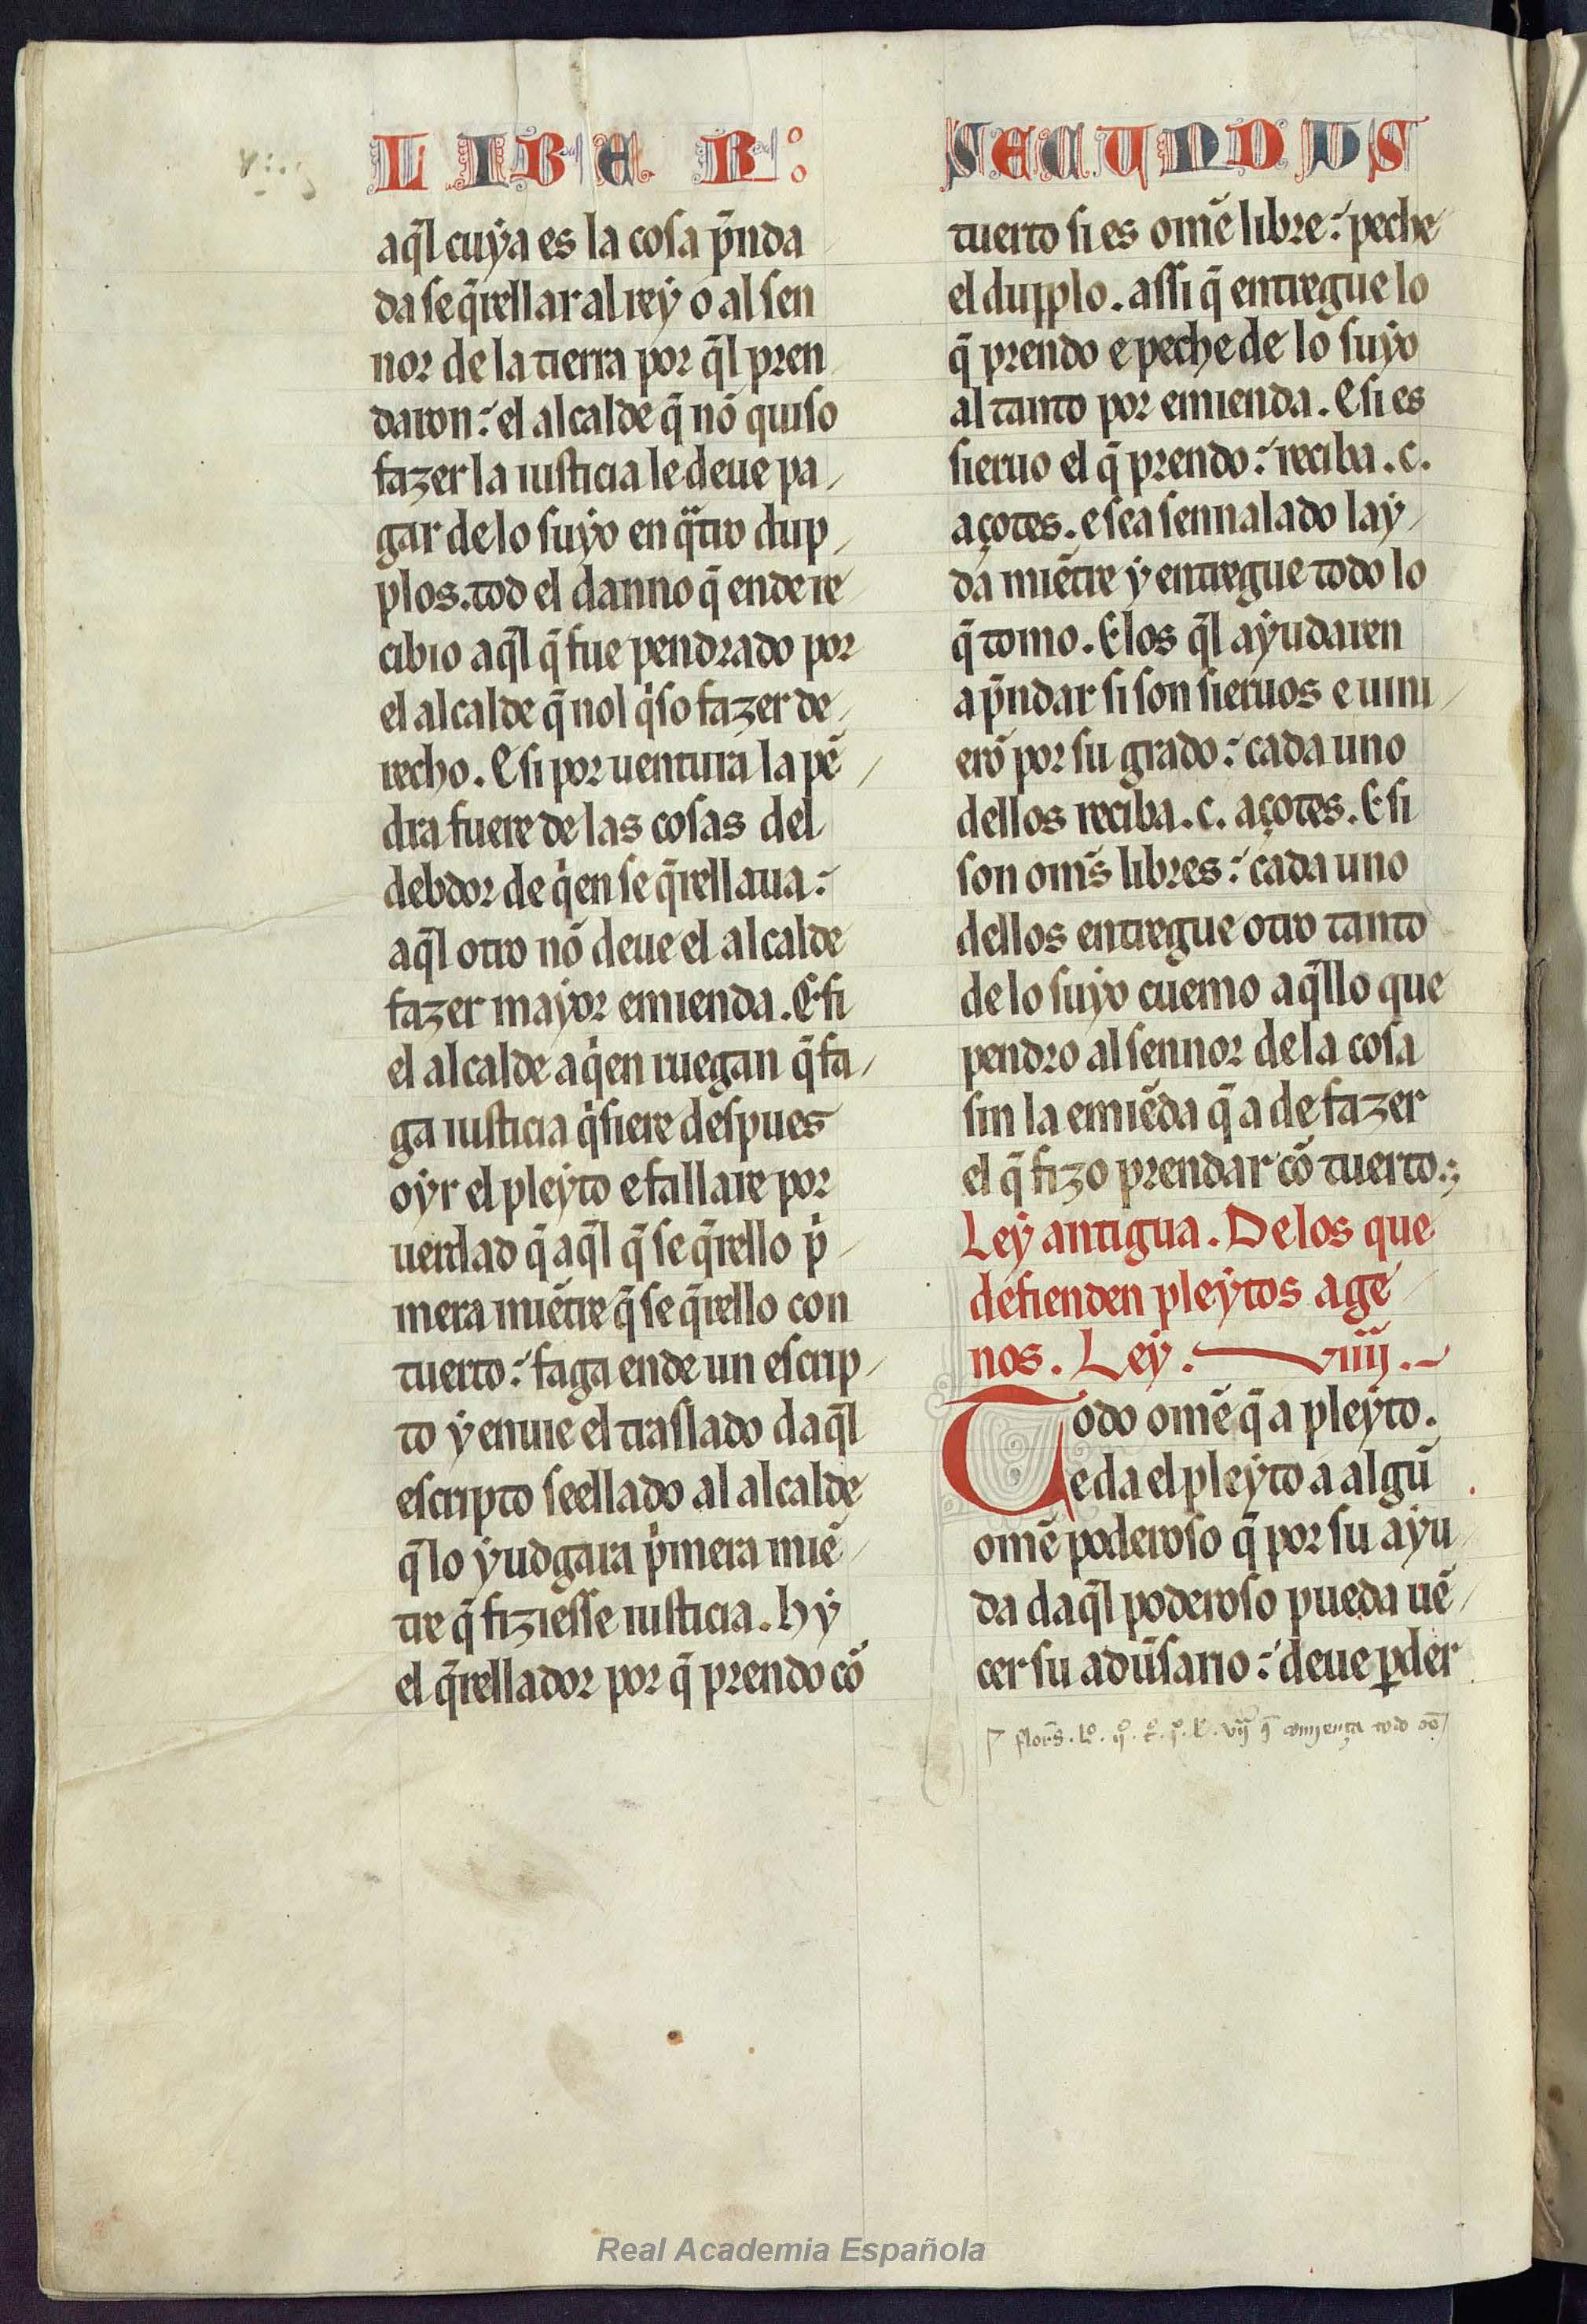 LIBER:
aq̃l cuẏa es la cosa p̃nda
da se q̃rellar al reẏ o al sen
nor de la tierra por q̃l pren
daron: el alcalde q̃ nõ quiso
fazer la iusticia le deue pa/
gar de lo suẏo en qᵃtro dup/
plos. tod el danno q̃ ende re
cibio aq̃l q̃ fue pendrado por
el alcalde q̃ nol qⁱso fazer de/
recho. E si por uentura la pẽ/
dra fuere de las cosas del
debdor de qⁱen se q̃rellaua:
aq̃l otro nõ deue el alcalde
fazer mayor emienda. E si
el alcalde a qⁱen ruegan q̃ fa/
ga iusticia qⁱsiere despues
oẏr el pleẏto e fallare por
uerdad q̃ aq̃l q̃ se q̃rello pⁱ/
mera miẽtre q̃ se q̃rello con
tuerto: faga ende un escrip/
to ẏ enuie el traslado daq̃l
escripto seellado al alcalde
q̃ lo ẏudgara pⁱmera miẽ/
tre q̃ fiziesse iusticia. hẏ
el q̃rellador por q̃ prendo cõ
SECUNDUS
tuerto si es omẽ libre: peche
el dupplo. assi q̃ entregue lo
q̃ prendo e peche de lo suẏo
al tanto por emienda. E si es
sieruo el q̃ prendo: reciba .c.
açotes. e sea sennalado laẏ/
da miẽtre ẏ entregue todo lo
q̃ tomo. E los q̃l aẏudaren
a p̃ndar si son sieruos e uini/
erõ por su grado: cada uno
dellos reciba .c. açotes. E si
son om̃s libres: cada uno
dellos entregue otro tanto
de lo suẏo cuemo aq̃llo que
pendro al sennor de la cosa
sin la emiẽda q̃ a de fazer
el q̃ fizo prendar cõ tuerto.
Leẏ antigua. De los que
defienden pleẏtos age/
nos. Leẏ. viiij.
Todo omẽ q̃ a pleẏto.
e da el pleẏto a algũ
omẽ poderoso q̃ por su aẏu/
da daq̃l poderoso pueda uẽ/
cer su adũsario: deue ꝑder
comjença todo
Real Academia Española